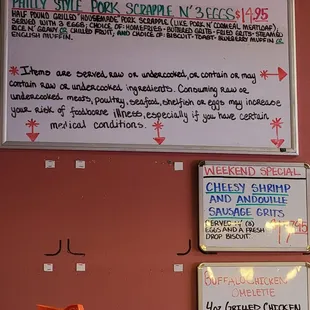 PHILLY STYLE PORK SCRAPPLE N' 3 EGGS $14.95
HALF POUND GRILLED "HOUSEMADE" PORK SCRAPPLE (LIKE PORK N' CORNMEAL MEATLOAF)
SERVED WITH 3 EGGS; CHOICE OF: HOMEFRIES - BUTTERED GRITS - FRIED GRITS - STEAMED
RICE N' GRAVY OR CHILLED FRUIT, AND CHOICE OF: BISCUIT - TOAST - BLUEBERRY MUFFIN OR
ENGLISH MUFFIN.
Items are served, raw or undercooked, or contain or may
contain raw or undercooked ingredients. Consuming raw or
undercooked meats, poultry, seafood, shellfish or eggs may increase
your risk of foodborne illness, especially if you have certain
medical conditions.
WEEKEND SPECIAL
CHEESY SHRIMP
AND ANDOUILLE
SAUSAGE GRITS
SERVED (3)
EGGS AND A FRESH
DROP BISCUIT
BUFFALO CHICKEN
OMELETTE
4oz GRILLED CHICKEN